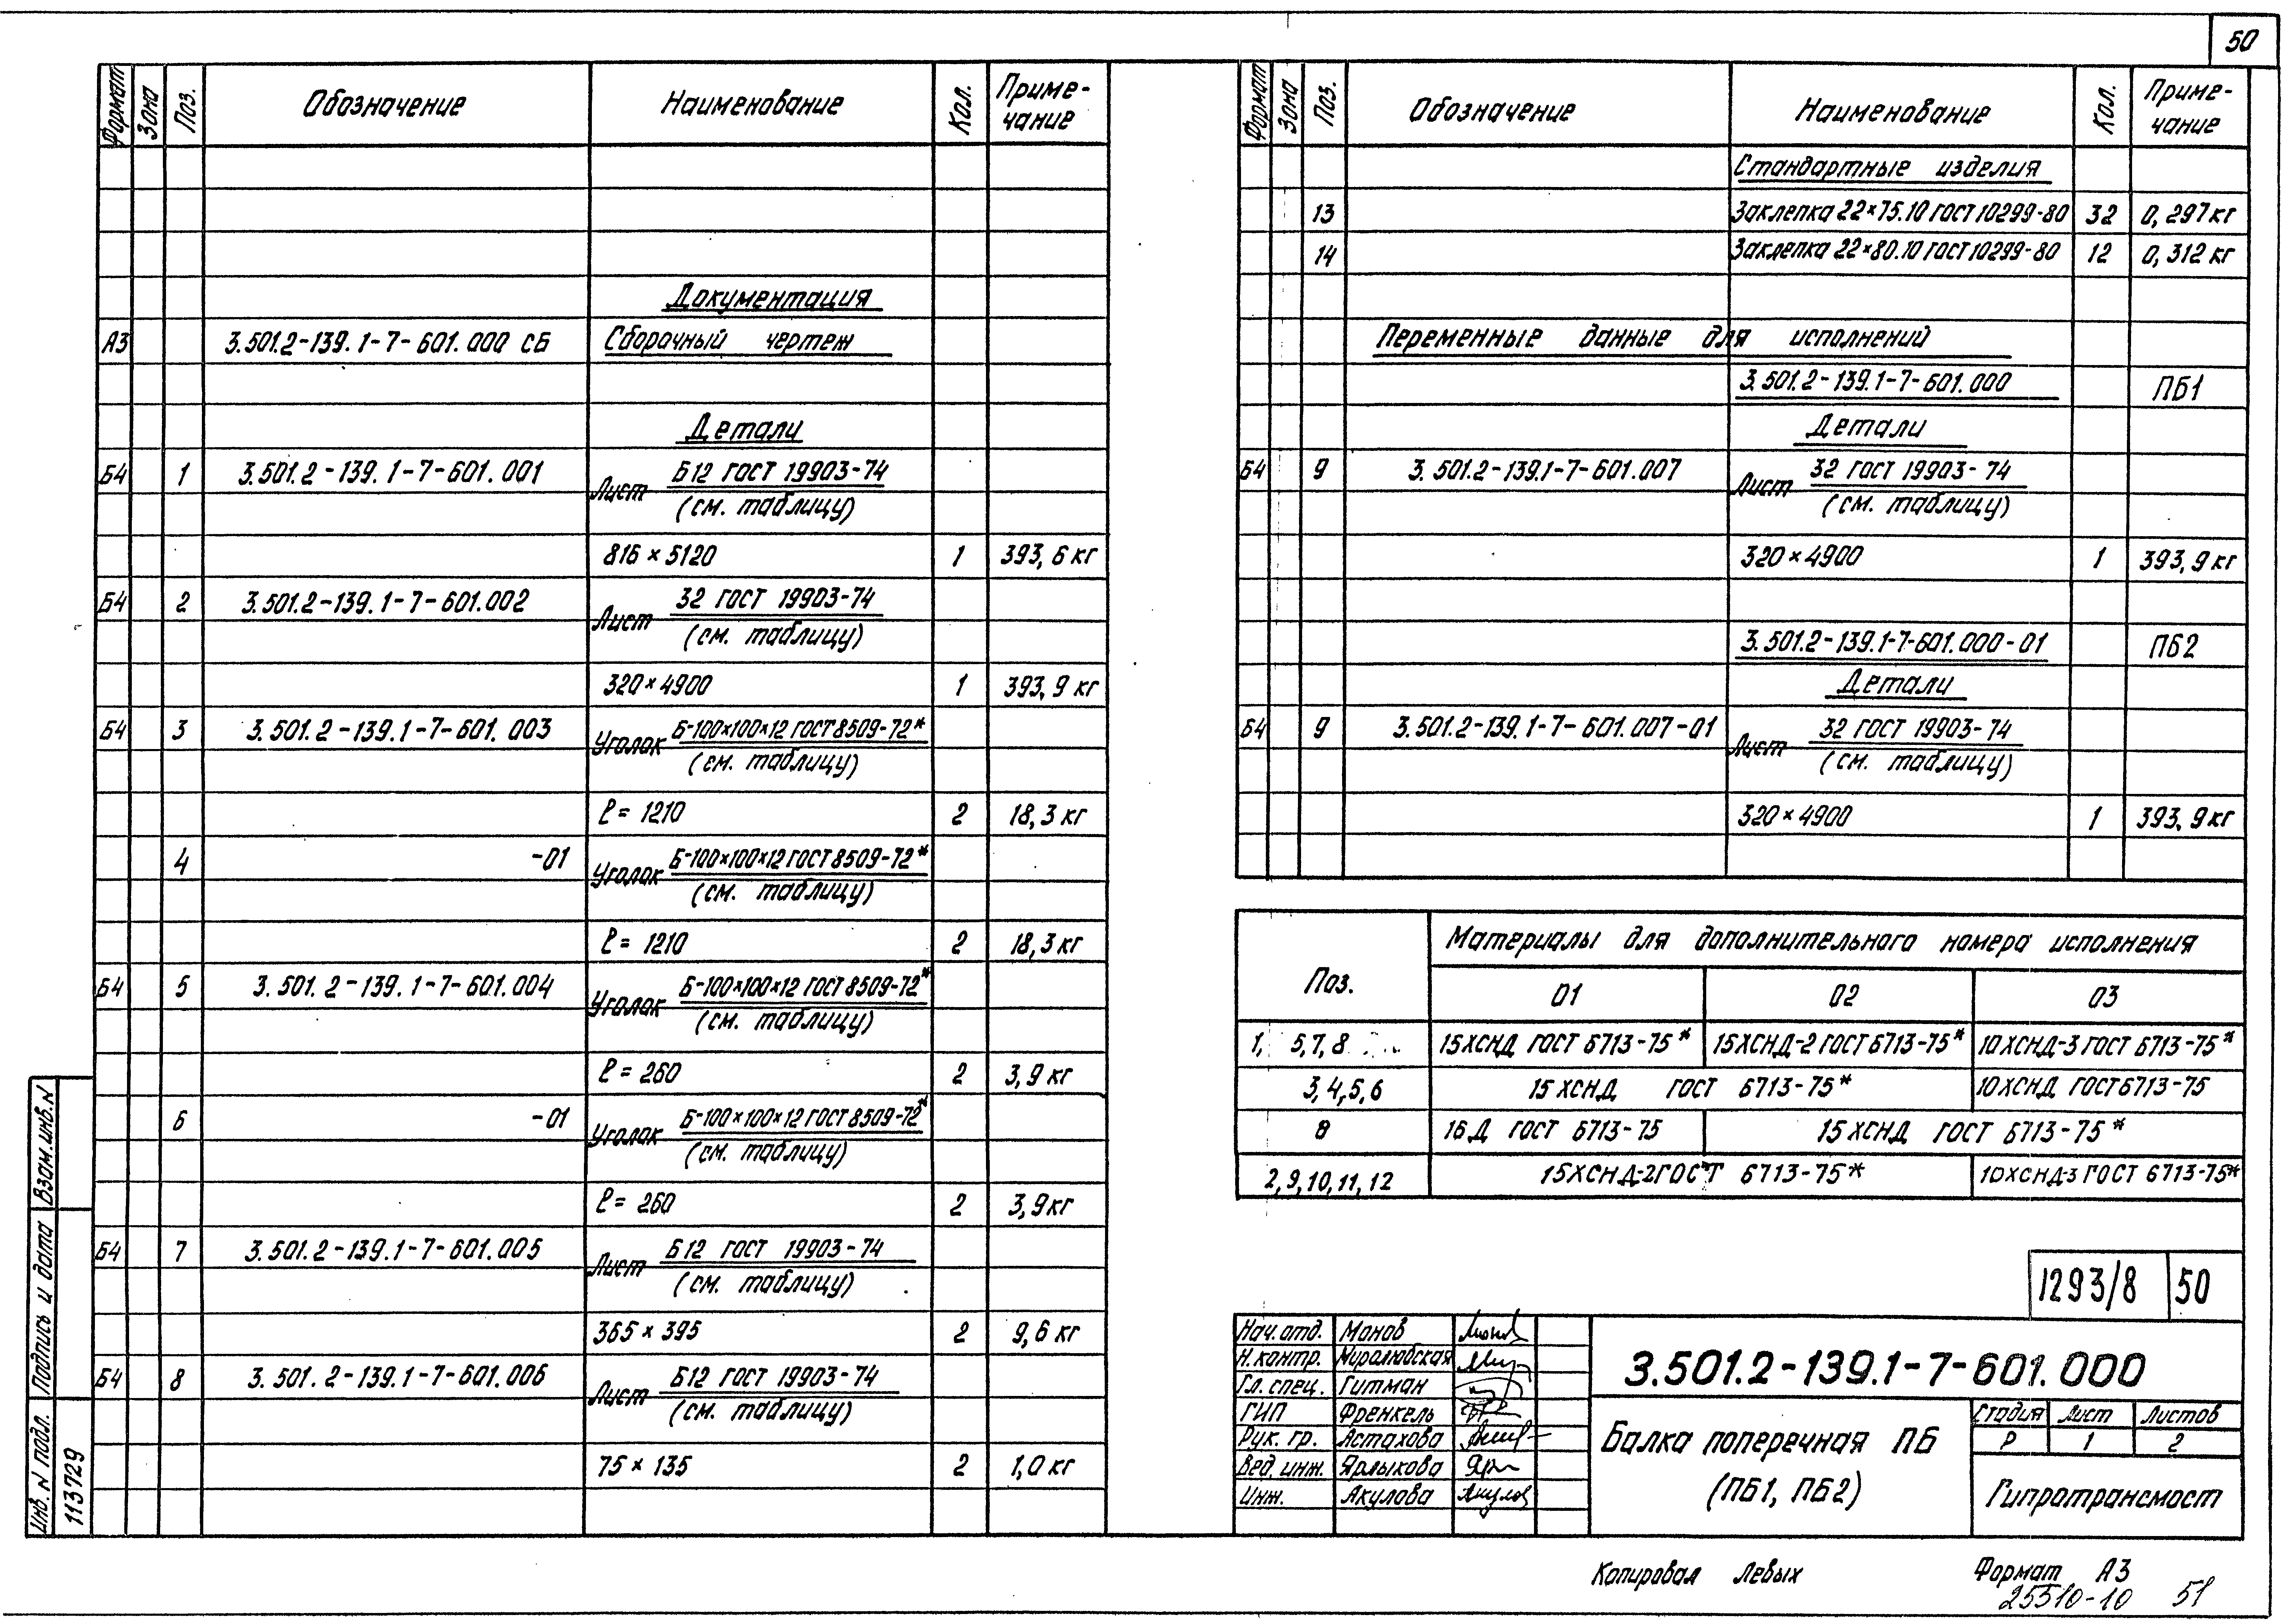 50
Формат Зона Поз. Обозначение Наименование Кол. Приме-чание
Документация
А3 3.501.2-139.1-7-601.000 СБ Сборочный чертеж
Детали
Б4 1 3.501.2-139.1-7-601.001 Лист Б12 ГОСТ 19903-74
(см. таблицу)
816×5120 1 393,6 кг
Б4 2 3.501.2-139.1-7-601.002 Лист 32 ГОСТ 19903-74
(см. таблицу)
320×4900 1 393,9 кг
Б4 3 3.501.2-139.1-7-601.003 Уголок Б-100×100×12 ГОСТ 8509-72*
(см. таблицу)
ℓ=1210 2 18,3 кг
4 -01 Уголок Б-100×100×12 ГОСТ 8509-72*
(см. таблицу)
ℓ=1210 2 18,3 кг
Б4 5 3.501.2-139.1-7-601.004 Уголок Б-100×100×12 ГОСТ 8509-72*
(см. таблицу)
ℓ=260 2 3,9 кг
6 -01 Уголок Б-100×100×12 ГОСТ 8509-72*
(см. таблицу)
ℓ=260 2 3,9 кг
Б4 7 3.501.2-139.1-7-601.005 Лист Б12 ГОСТ 19903-74
(см. таблицу)
365×395 2 9,6 кг
Б4 8 3.501.2-139.1-7-601.006 Лист Б12 ГОСТ 19903-74
(см. таблицу)
75×135 2 1,0 кг
Инв. N подл. Подпись и дата Взам.инв.N
113729
Формат Зона Поз. Обозначение Наименование Кол. Приме-чание
Стандартные изделия
13 Заклепка 22×75.10 ГОСТ 10299-80 32 0,297 кг
14 Заклепка 22×80.10 ГОСТ 10299-80 12 0,312 кг
Переменные данные для исполнений
3.501.2-139.1-7-601.000 ПБ1
Детали
Б4 9 3.501.2-139.1-7-601.007 Лист 32 ГОСТ 19903-74
(см. таблицу)
320×4900 1 393,9 кг
3.501.2-139.1-7-601.000-01 ПБ2
Детали
Б4 9 3.501.2-139.1-7-601.007-01 Лист 32 ГОСТ 19903-74
(см. таблицу)
320×4900 1 393,9 кг
Поз. Материалы для дополнительного номера исполнения
01 02 03
1, 5,7,8 15ХСНД ГОСТ 6713-75* 15ХСНД-2 ГОСТ 6713-75* 10ХСНД-3 ГОСТ 6713-75*
3,4,5,6 15ХСНД ГОСТ 6713-75* 10ХСНД ГОСТ 6713-75
8 16Д ГОСТ 6713-75 15ХСНД ГОСТ 6713-75*
2,9,10,11,12 15ХСНД-2 ГОСТ 6713-75* 10ХСНД-3 ГОСТ 6713-75*
1293/8 50
Нач.отд. Монов
Н.контр. Миролюбская
Гл. спец. Гитман
ГИП Френкель
Рук. гр. Астахова
Вед. инж. Ярлыкова
Инж. Акулова
3.501.2-139.1-7-601.000
Балка поперечная ПБ
(ПБ1, ПБ2)
Стадия Лист Листов
Р 1 2
Гипротрансмост
Копировал Левых Формат А3
25510-10 51